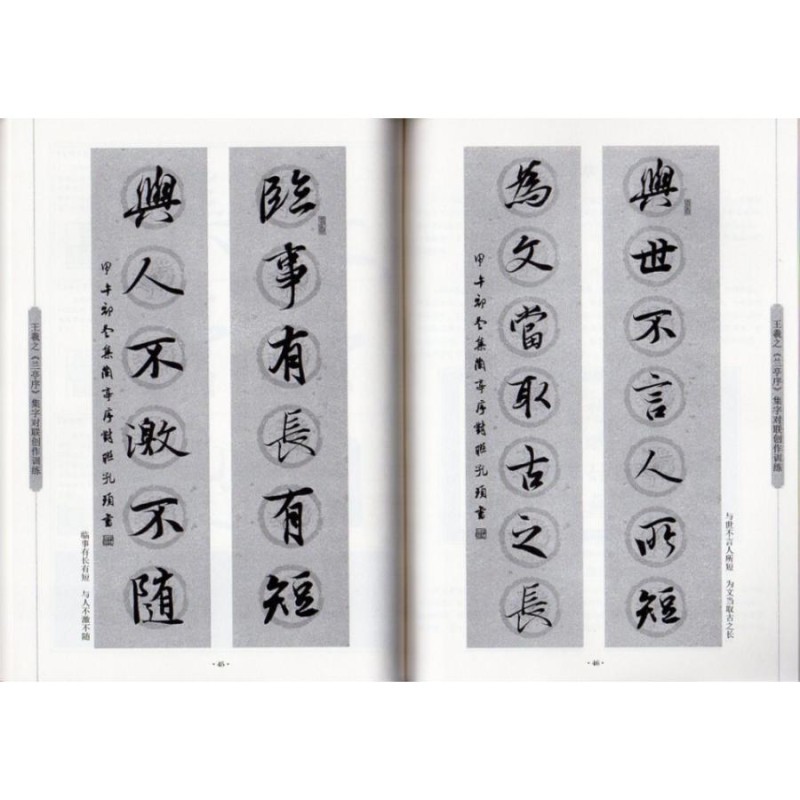 臨事有長有短
與人不激不隨
甲午初冬集蘭亭序對聯孔書
临事有长有短 与人不激不随
王羲之《兰亭序》集字对联创作训练
·45·
與世不言人所短
為文當取古之長
甲午初冬集蘭亭序對聯孔書
与世不言人所短 为文当取古之长
王羲之《兰亭序》集字对联创作训练
·46·